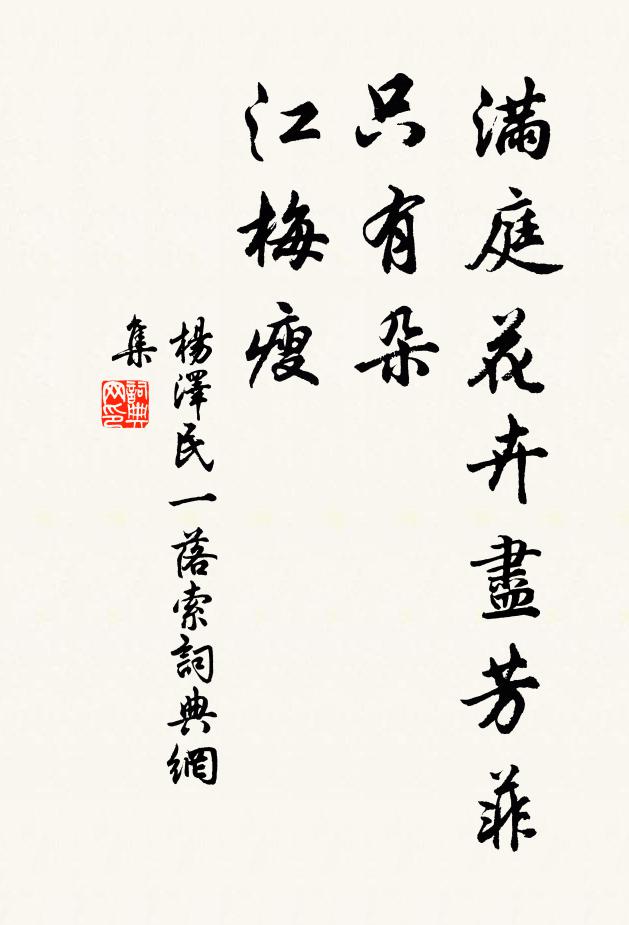 滿庭花卉盡芳菲
只有朵
江梅瘦
楊澤民一落索詞典網
集
詞典
网印